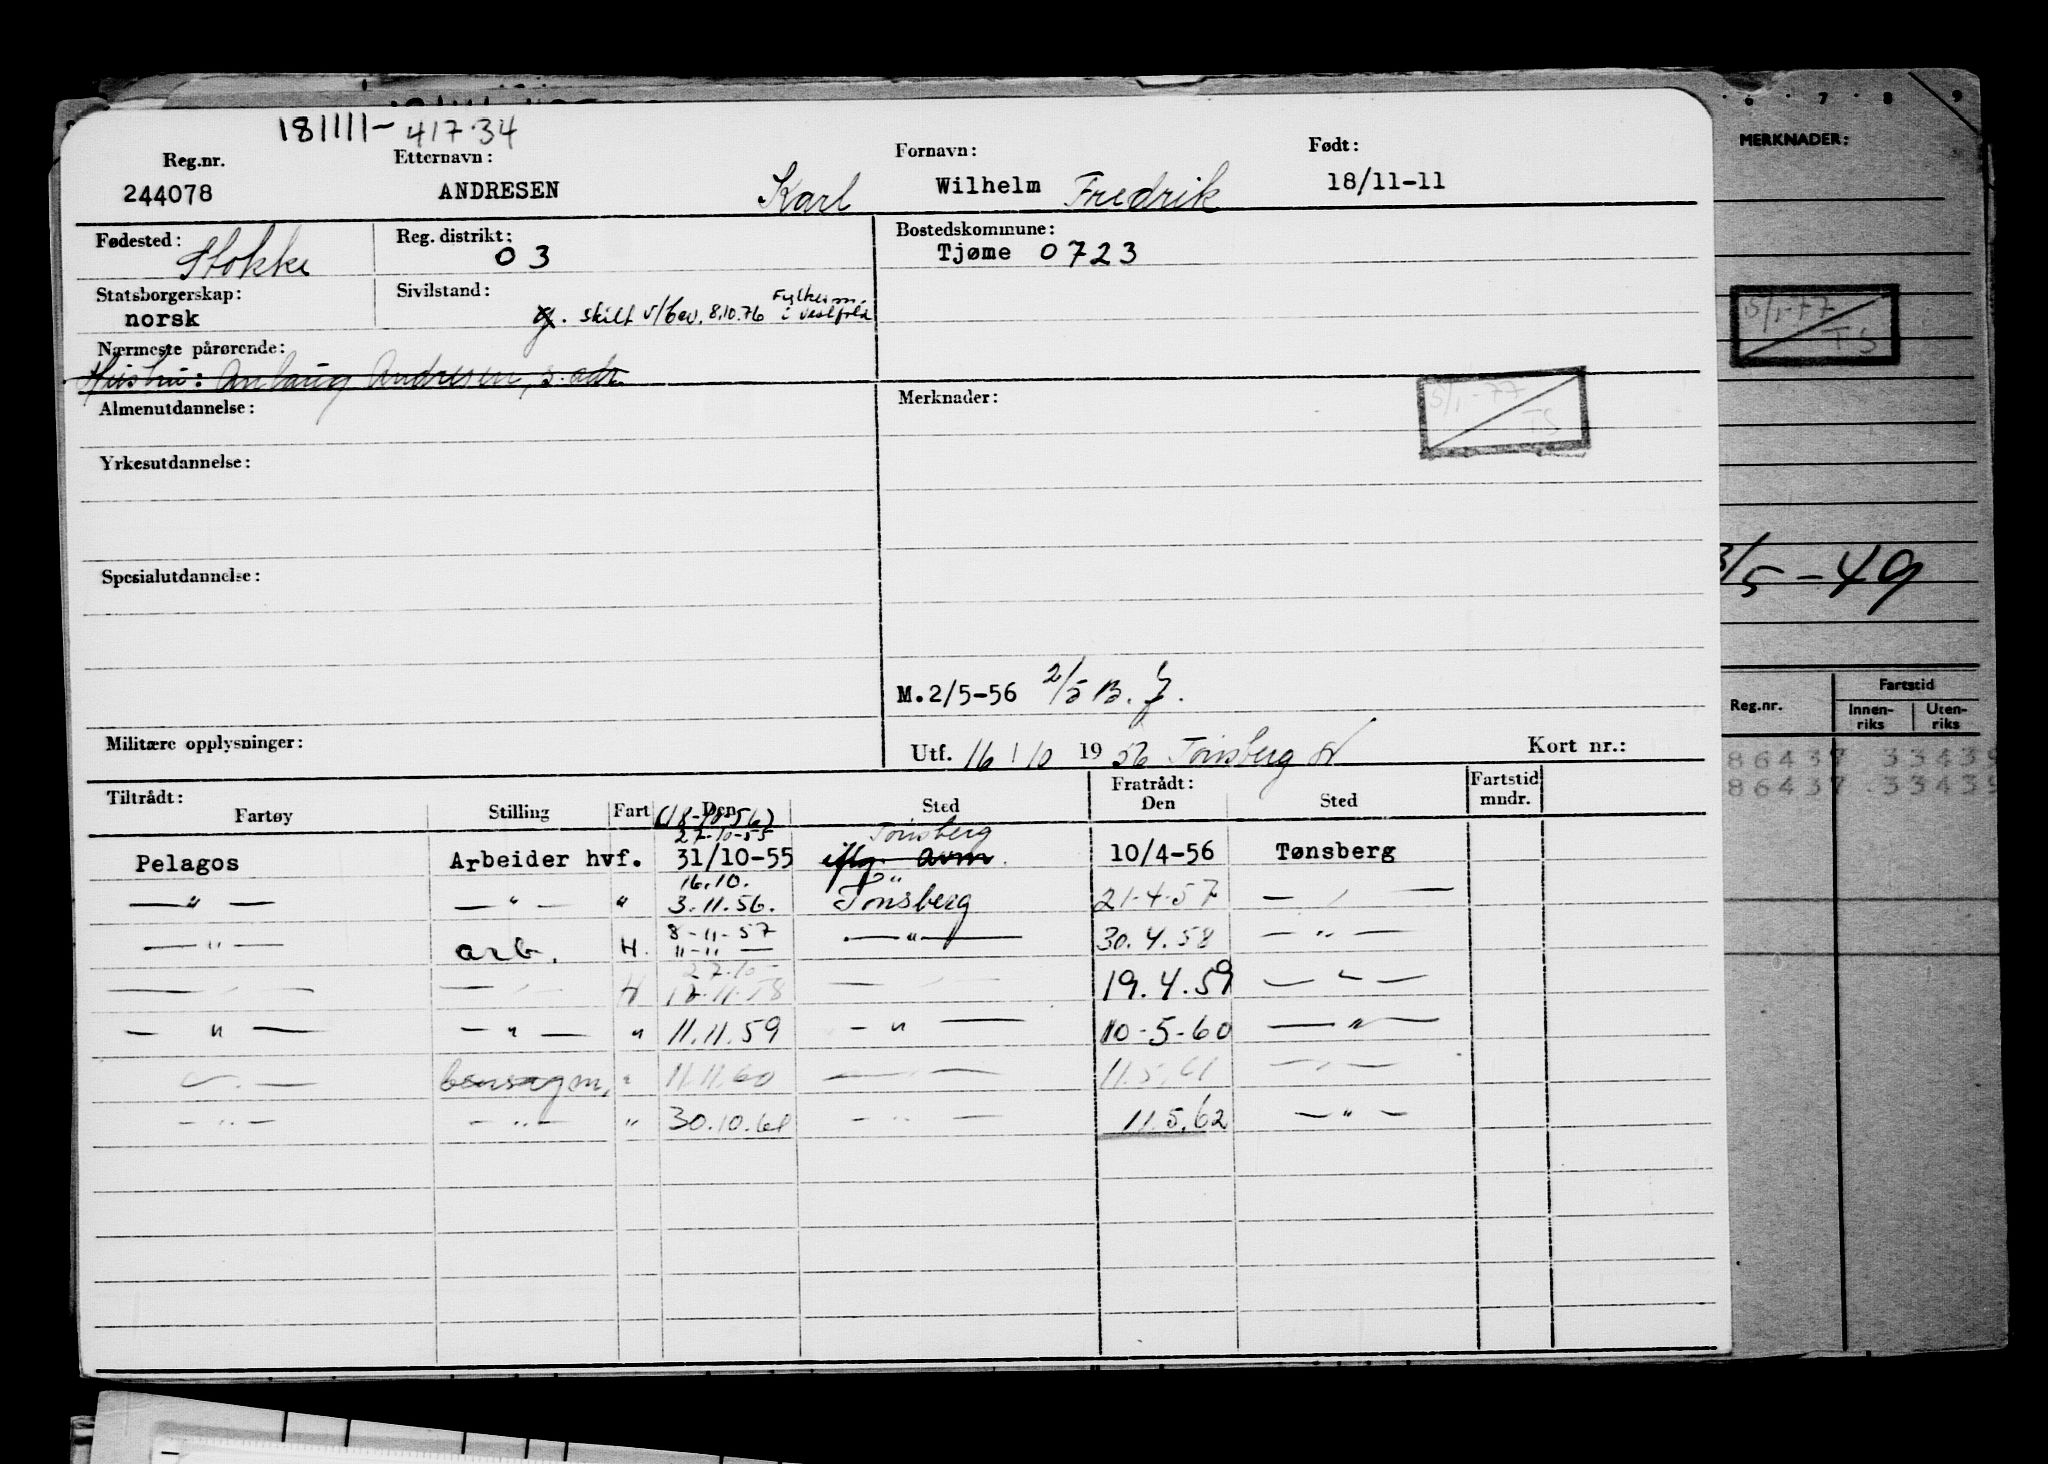 181111-417.34
Reg.nr. Etternavn: Fornavn: Født:
244078 ANDRESEN Karl Wilhelm Fredrik 18/11-11
Fødested: Stokke Reg. distrikt: 03 Bostedskommune: Tjøme 0723
Statsborgerskap: norsk Sivilstand: g. skilt v/bev. 8.10.76 Fylkesm. i Vestfold
Nærmeste pårørende:
Hustru: Anlaug Andresen, s. adr.
Almenutdannelse: Merknader: 5/1-77 TS
Yrkesutdannelse:
Spesialutdannelse:
M.2/5-56 2/5 B.
Militære opplysninger: Utf. 16/10 1956 Tønsberg Kort nr.:
Tiltrådt: Fratrådt: Fartstid
Fartøy Stilling Fart Den Sted Den Sted mndr.
(18-10-56)
27-10-55 Tønsberg
Pelagos Arbeider hvf. 31/10-55 avm 10/4-56 Tønsberg
16.10. "
— " — — " — " 3.11.56. Tønsberg 21.4.57 — " —
8-11-57
— " — arb. H. " - " — — " — 30.4.58 — " —
27.10-
— " — — " — H 17.11.58 — " — 19.4.59 — " —
— " — — " — " 11.11.59 — " — 10-5-60 — " —
— " — bensagm. " 11.11.60 — " — 11.5.61 — " —
— " — — " — " 30.10.61 — " — 11.5.62 — " —
6 7 8 9
MERKNADER:
5/1-77
TS
3/5-49
Reg.nr. Fartstid
Innenriks Utenriks
86437 33439
86437 33439